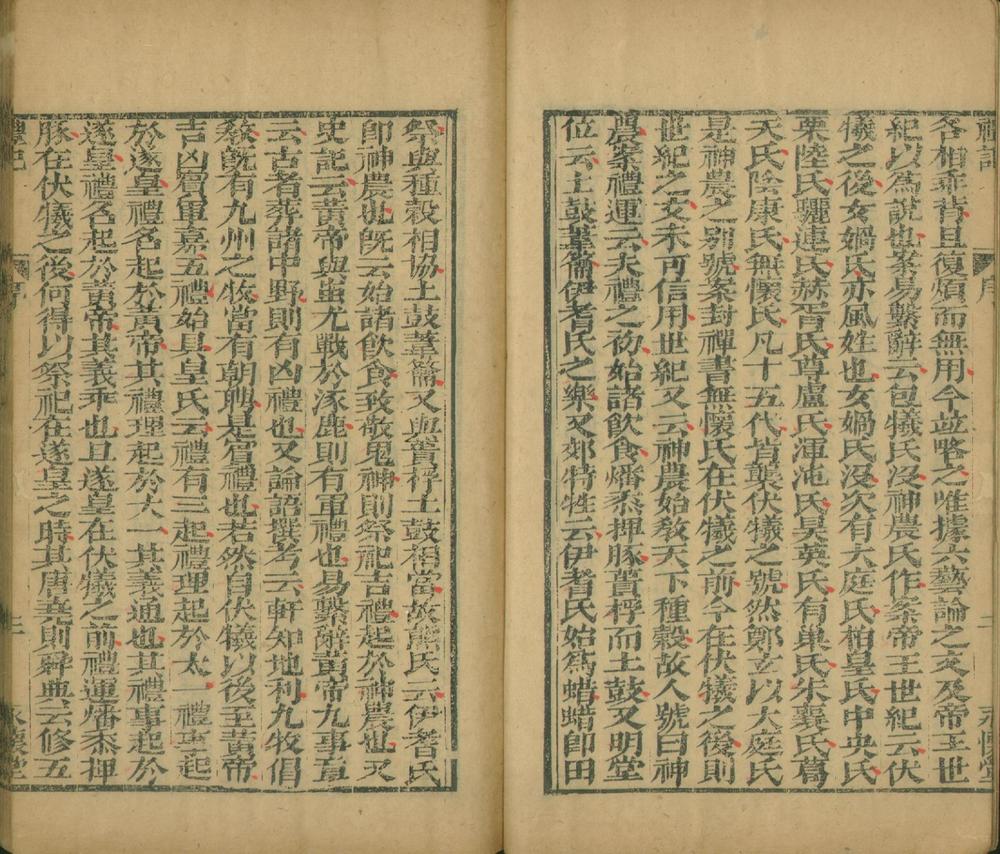 各相乖背且復煩而無用今並略之唯據六藝論之文及帝王世
紀以爲說也案易繫辭云包犧氏沒神農氏作案帝王世紀云伏
犧之後女媧氏亦風姓也女媧氏沒次有大庭氏柏皇氏中央氏
栗陸氏驪連氏赫胥氏尊盧氏渾沌氏昊英氏有巢氏朱襄氏葛
天氏陰康氏無懷氏凡十五代皆襲伏犧之號然鄭玄以大庭氏
是神農之別號案封禪書無懷氏在伏犧之前今在伏犧之後則
世紀之文未可信用世紀又云神農始敎天下種穀故人號曰神
農案禮運云夫禮之初始諸飲食燔黍捭豚蕢桴而土鼓又明堂
位云土鼓葦籥伊耆氏之樂又郊特牲云伊耆氏始爲蜡蜡卽田
祭與種穀相協土鼓葦籥又與蕢桴土鼓相當故熊氏云伊耆氏
卽神農也旣云始諸飲食致敬鬼神則祭祀吉禮起於神農也又
史記云黃帝與蚩尤戰於涿鹿則有軍禮也易繫辭黃帝九事章
云古者葬諸中野則有凶禮也又論語撰考云軒知地利九牧倡
敎旣有九州之牧當有朝聘是賓禮也若然自伏犧以後至黃帝
吉凶賓軍嘉五禮始具皇氏云禮有三起禮理起於太一禮事起
於遂皇禮名起於黃帝其禮理起於大一其義通也其禮事起於
遂皇禮名起於黃帝其義乖也且遂皇在伏犧之前禮運燔黍捭
豚在伏犧之後何得以祭祀在遂皇之時其唐堯則舜典云修五
禮記 序 三 永懷堂